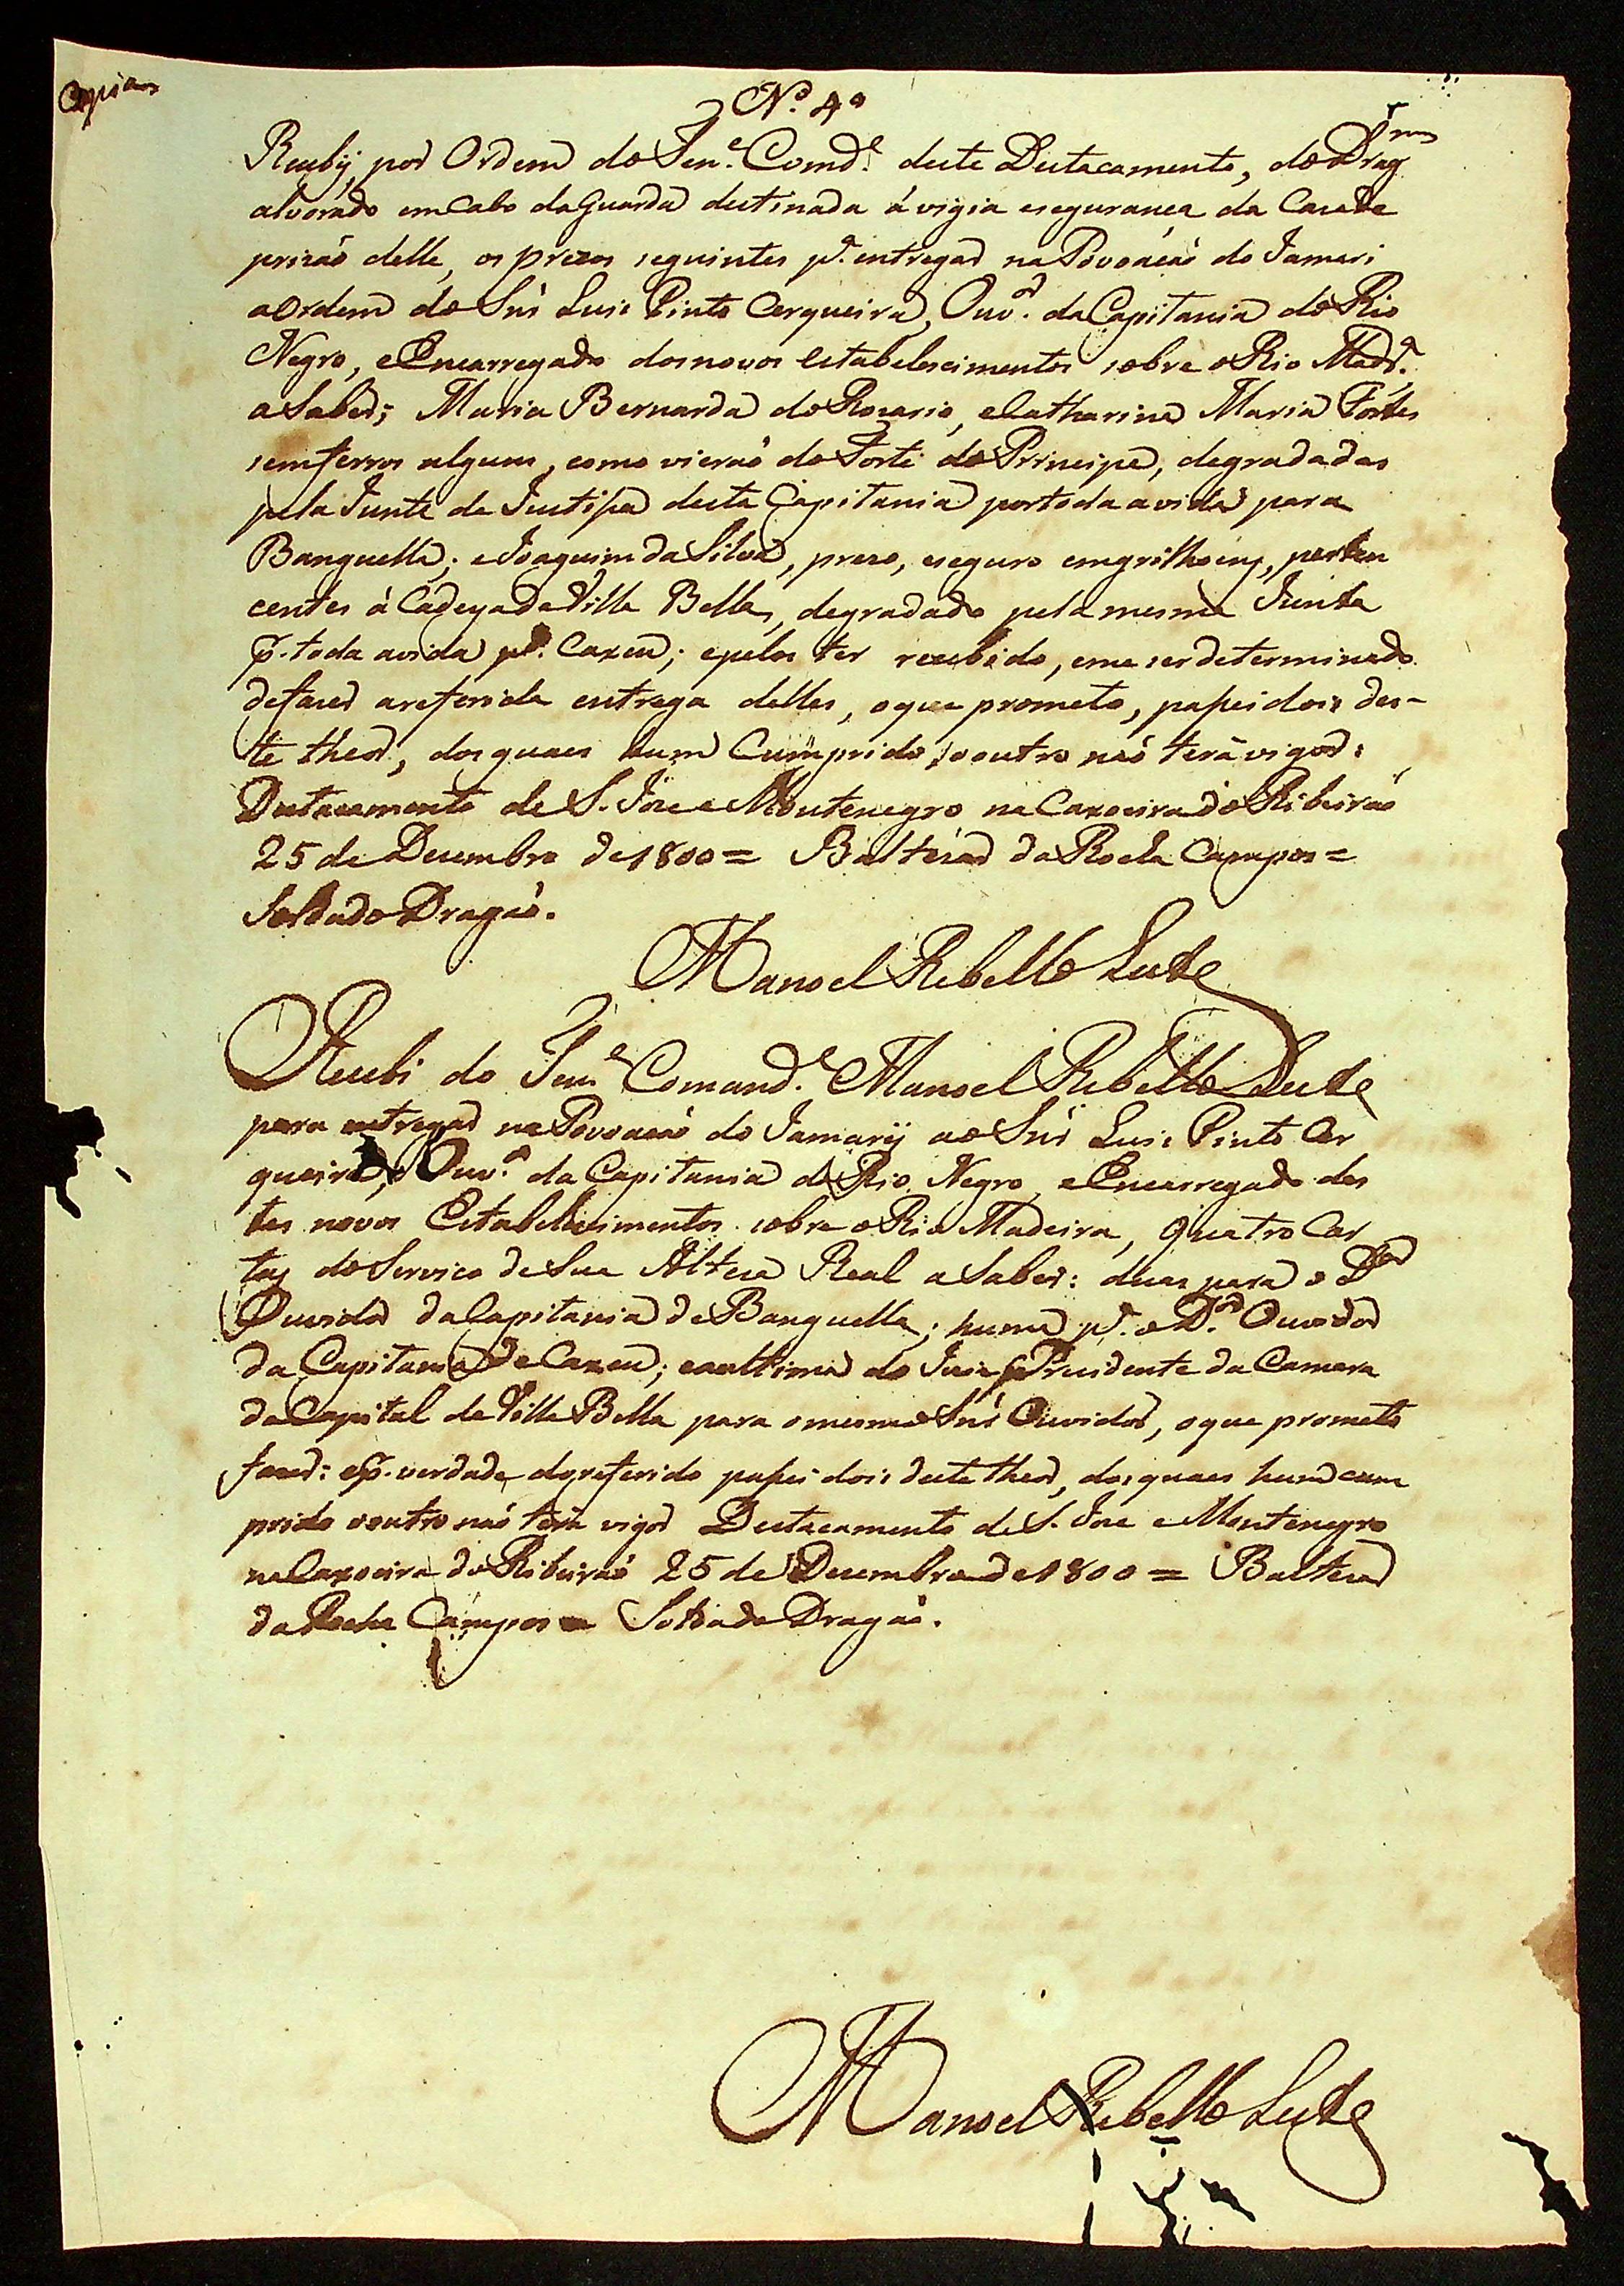 Copias
N.º 4º
Reciby, por Ordem do Ten.e Comd.e deste Destacamento, do Drag
alvorado em Cabo da Guarda destinada á vigia e segurança da Casa de
prizaõ delle, os prezos seguintes p.ª entregar na Povoaçaõ do Jamari
a Ordem do Snr Luis Pinto Cerqueira, Ouv.or da Capitania do Rio
Negro, e Encarregado dos novos Estabelescimentos sobre o Rio Mad.ra
a Saber; Maria Bernarda do Rozario, e Catharina Maria Fortes
sem ferros alguns, como vieraõ do Forte do Principe, degradadas
pela Junta de Justiça desta Capitania por toda a vida para
Banguella; e Joaquim da Silva, prezo, e seguro em grilhoens, perten
centes á Cadeya de Villa Bella, degradado pela mesma Junta
p.r toda a vida p.ª Caxeu; e pelos ter recebido, e me ser determinado
de fazer a referida entrega delles, o que prometo, passei dois des-
te theor, dos quaes hum Cumprido, o outro naõ terá vigor:
Destacamento de S. Joze e Montenegro na Caxoeira do Ribeiraõ
25 de Dezembro de 1800 = Baltezar da Rocha Campos =
Soldado Dragaõ.
Manoel Rebello Leite
Recebi do Ten.e Comand.e Manoel Rebello Leite
para entregar na Povoaçaõ do Jamarÿ ao Snr Luis Pinto Cer
queira, Ouv.or da Capitania do Rio Negro, e Encarregado des
tes novos Estabelecimentos sobre o Rio Madeira, quatro Car
tas do Serviço de Sua Alteza Real a Saber: duas para o D.or
Ouvidor da Capitania de Banguella; huma p.ª o D.or Ouvidor
da Capitania de Caxeu; e a ultima do Juiz Prezidente da Camara
da Capital de Villa Bella para o mesmo Snr Ouvidor, o que prometo
fazer: e p.r verdade do referido passei dois deste theor, dos quaes hum cum
prido o outro naõ terá vigor Destacamento de S. Joze e Montenegro
na Caxoeira do Ribeiraõ 25 de Dezembro de 1800 = Baltezar
da Rocha Campos = Soldado Dragaõ.
Manoel Rebello Leite